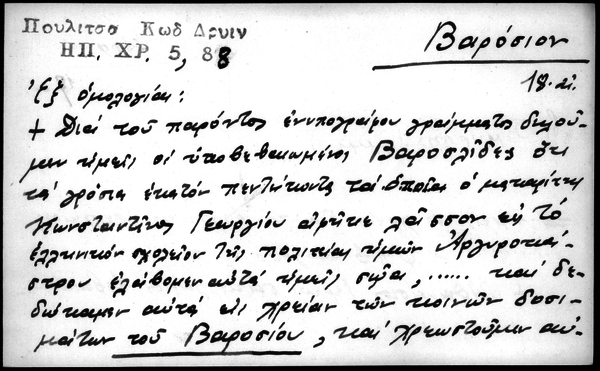 Πουλιτσα Κωδ Δρυιν
ΗΠ. ΧΡ. 5, 88
Βαρόσιον
18. αἰ.
ἐξ ὁμολογίας:
+ Διά τοῦ παρόντος ἐνυπογράφου γράμματος δηλοῦ-
μεν ἡμεῖς οἱ ὑποβεβαιωμένοι Βαροσλίδες ὅτι
τά γρόσια ἑκατόν πεντήκοντα τά ὁποῖα ὁ μακαρίτης
Κωνσταντῖνος Γεωργίου ἀφῆκε λάσσον εἰς τό
ἑλληνικόν σχολεῖον τῆς πολιτείας ἡμῶν Ἀργυροκά-
στρου ἐλάβομεν αὐτά ἡμεῖς , ...... καί δε-
δώκαμεν αὐτά εἰς χρείαν τῶν κοινῶν δοσι-
μάτων τοῦ Βαροσίου, καί χρεωστοῦμεν αὐ-